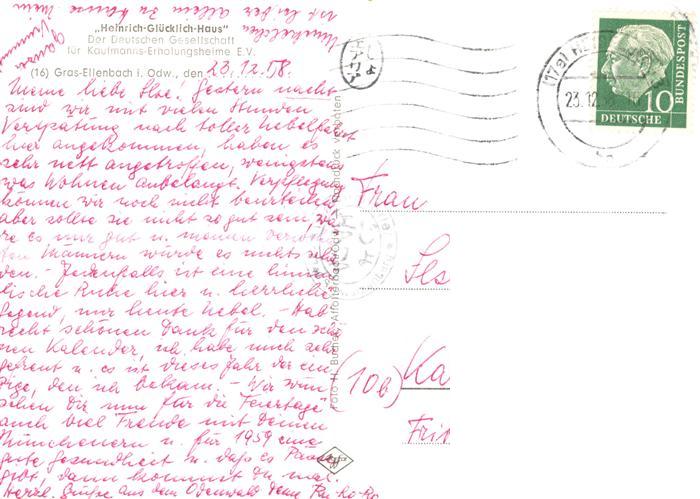 „Heinrich-Glücklich-Haus"
Der Deutschen Gesellschaft
für Kaufmanns-Erholungsheime E.V.
(16) Gras-Ellenbach i. Odw., den 23.12.58.
Meine liebe Ilse! Gestern nacht
sind wir mit vielen Stunden
Verspätung nach toller Nebelfahrt
hier angekommen, haben es
sehr nett angetroffen, wenigstens
was Wohnen anbelangt. Verpflegung
können wir noch nicht beurteilen,
aber sollte sie nicht so gut sein, wä
re es nur gut u. meinen verwöhn
ten Männern würde es nichts scha
den. - Jedenfalls ist eine himm
lische Ruhe hier u. herrliche
Gegend, nur heute Nebel. - Hab
recht schönen Dank für den schö
nen Kalender, ich habe mich sehr
gefreut u. es ist dieses Jahr der ein
zige, den ich bekam. - Wir wün
schen Dir nun für die Feiertage
auch viel Freude mit Deinen
Münchenern u. für 1959 eine
gute Gesundheit u. daß es
gibt, dann kommst Du mal.
Herzl. Grüße aus dem Odenwald Deine
ist leider allein zu Hause
Foto H.
Frau
Ils
(10b) Ka
Frit
23.12.
10
DEUTSCHE
BUNDESPOST